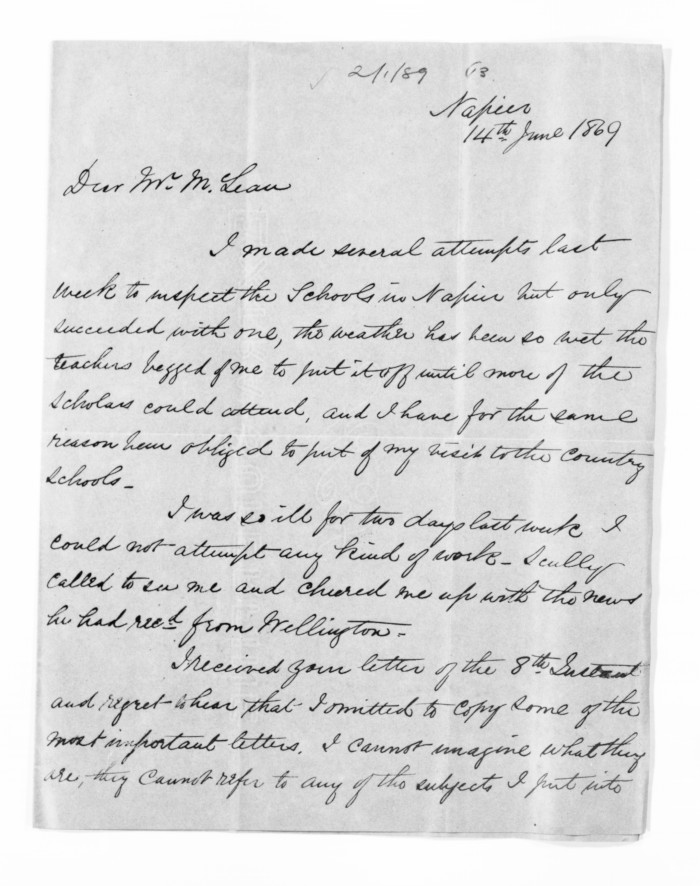 2/1/89 13
Napier
14th June 1869
Dear Mr. McLean
I made several attempts last
week to inspect the Schools in Napier but only
succeeded with one, the weather has been so wet the
teachers begged of me to put it off until more of the
scholars could attend, and I have for the same
reason been obliged to put of my visit to the Country
Schools –
I was so ill for two days last week I
could not attempt any kind of work – Scully
called to see me and cheered me up with the news
he had recd from Wellington –
I received your letter of the 8th Instant
and regret to hear that I omitted to copy some of the
most important letters. I cannot imagine what they
are, they cannot refer to any of the subjects I put into